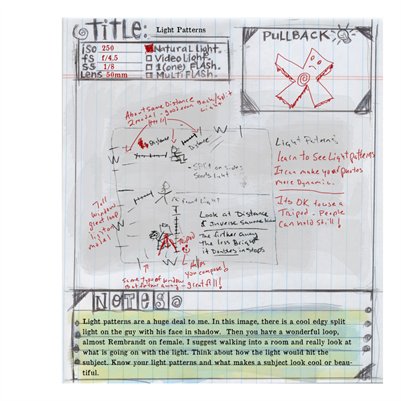 Title: Light Patterns
iso 250
fs f/4.5
ss 1/8
Lens 50mm
Natural Light.
Video Light.
1(one) FLASH.
MULTI FLASH.
PULLBACK
About Same Distance
2 modal - good even Back/Split
fill
Light
Distance
Distance
W
W
W
W
Split on sides
Sorta Light
Front Light
Tall
window
great loop
light on
modal
Light Patterns
learn to See Light patterns
It can make your photos
more Dynamic.
Its OK to use a
Tripod - People
can hold still!
Look at Distance
& Inverse Square Law
The farther away
the less Bright
it Doubles in stops
Tripod
Helps
you compose
Same type of window
But farther away - great fill!
Notes
Light patterns are a huge deal to me. In this image, there is a cool edgy split
light on the guy with his face in shadow. Then you have a wonderful loop,
almost Rembrandt on female. I suggest walking into a room and really look at
what is going on with the light. Think about how the light would hit the
subject. Know your light patterns and what makes a subject look cool or beau-
tiful.